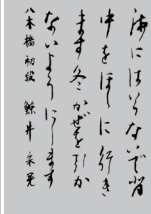 海にはいらないで背
中をほしに行き
ます冬かぜを引か
ないようにします
八木橋初段 鯨井